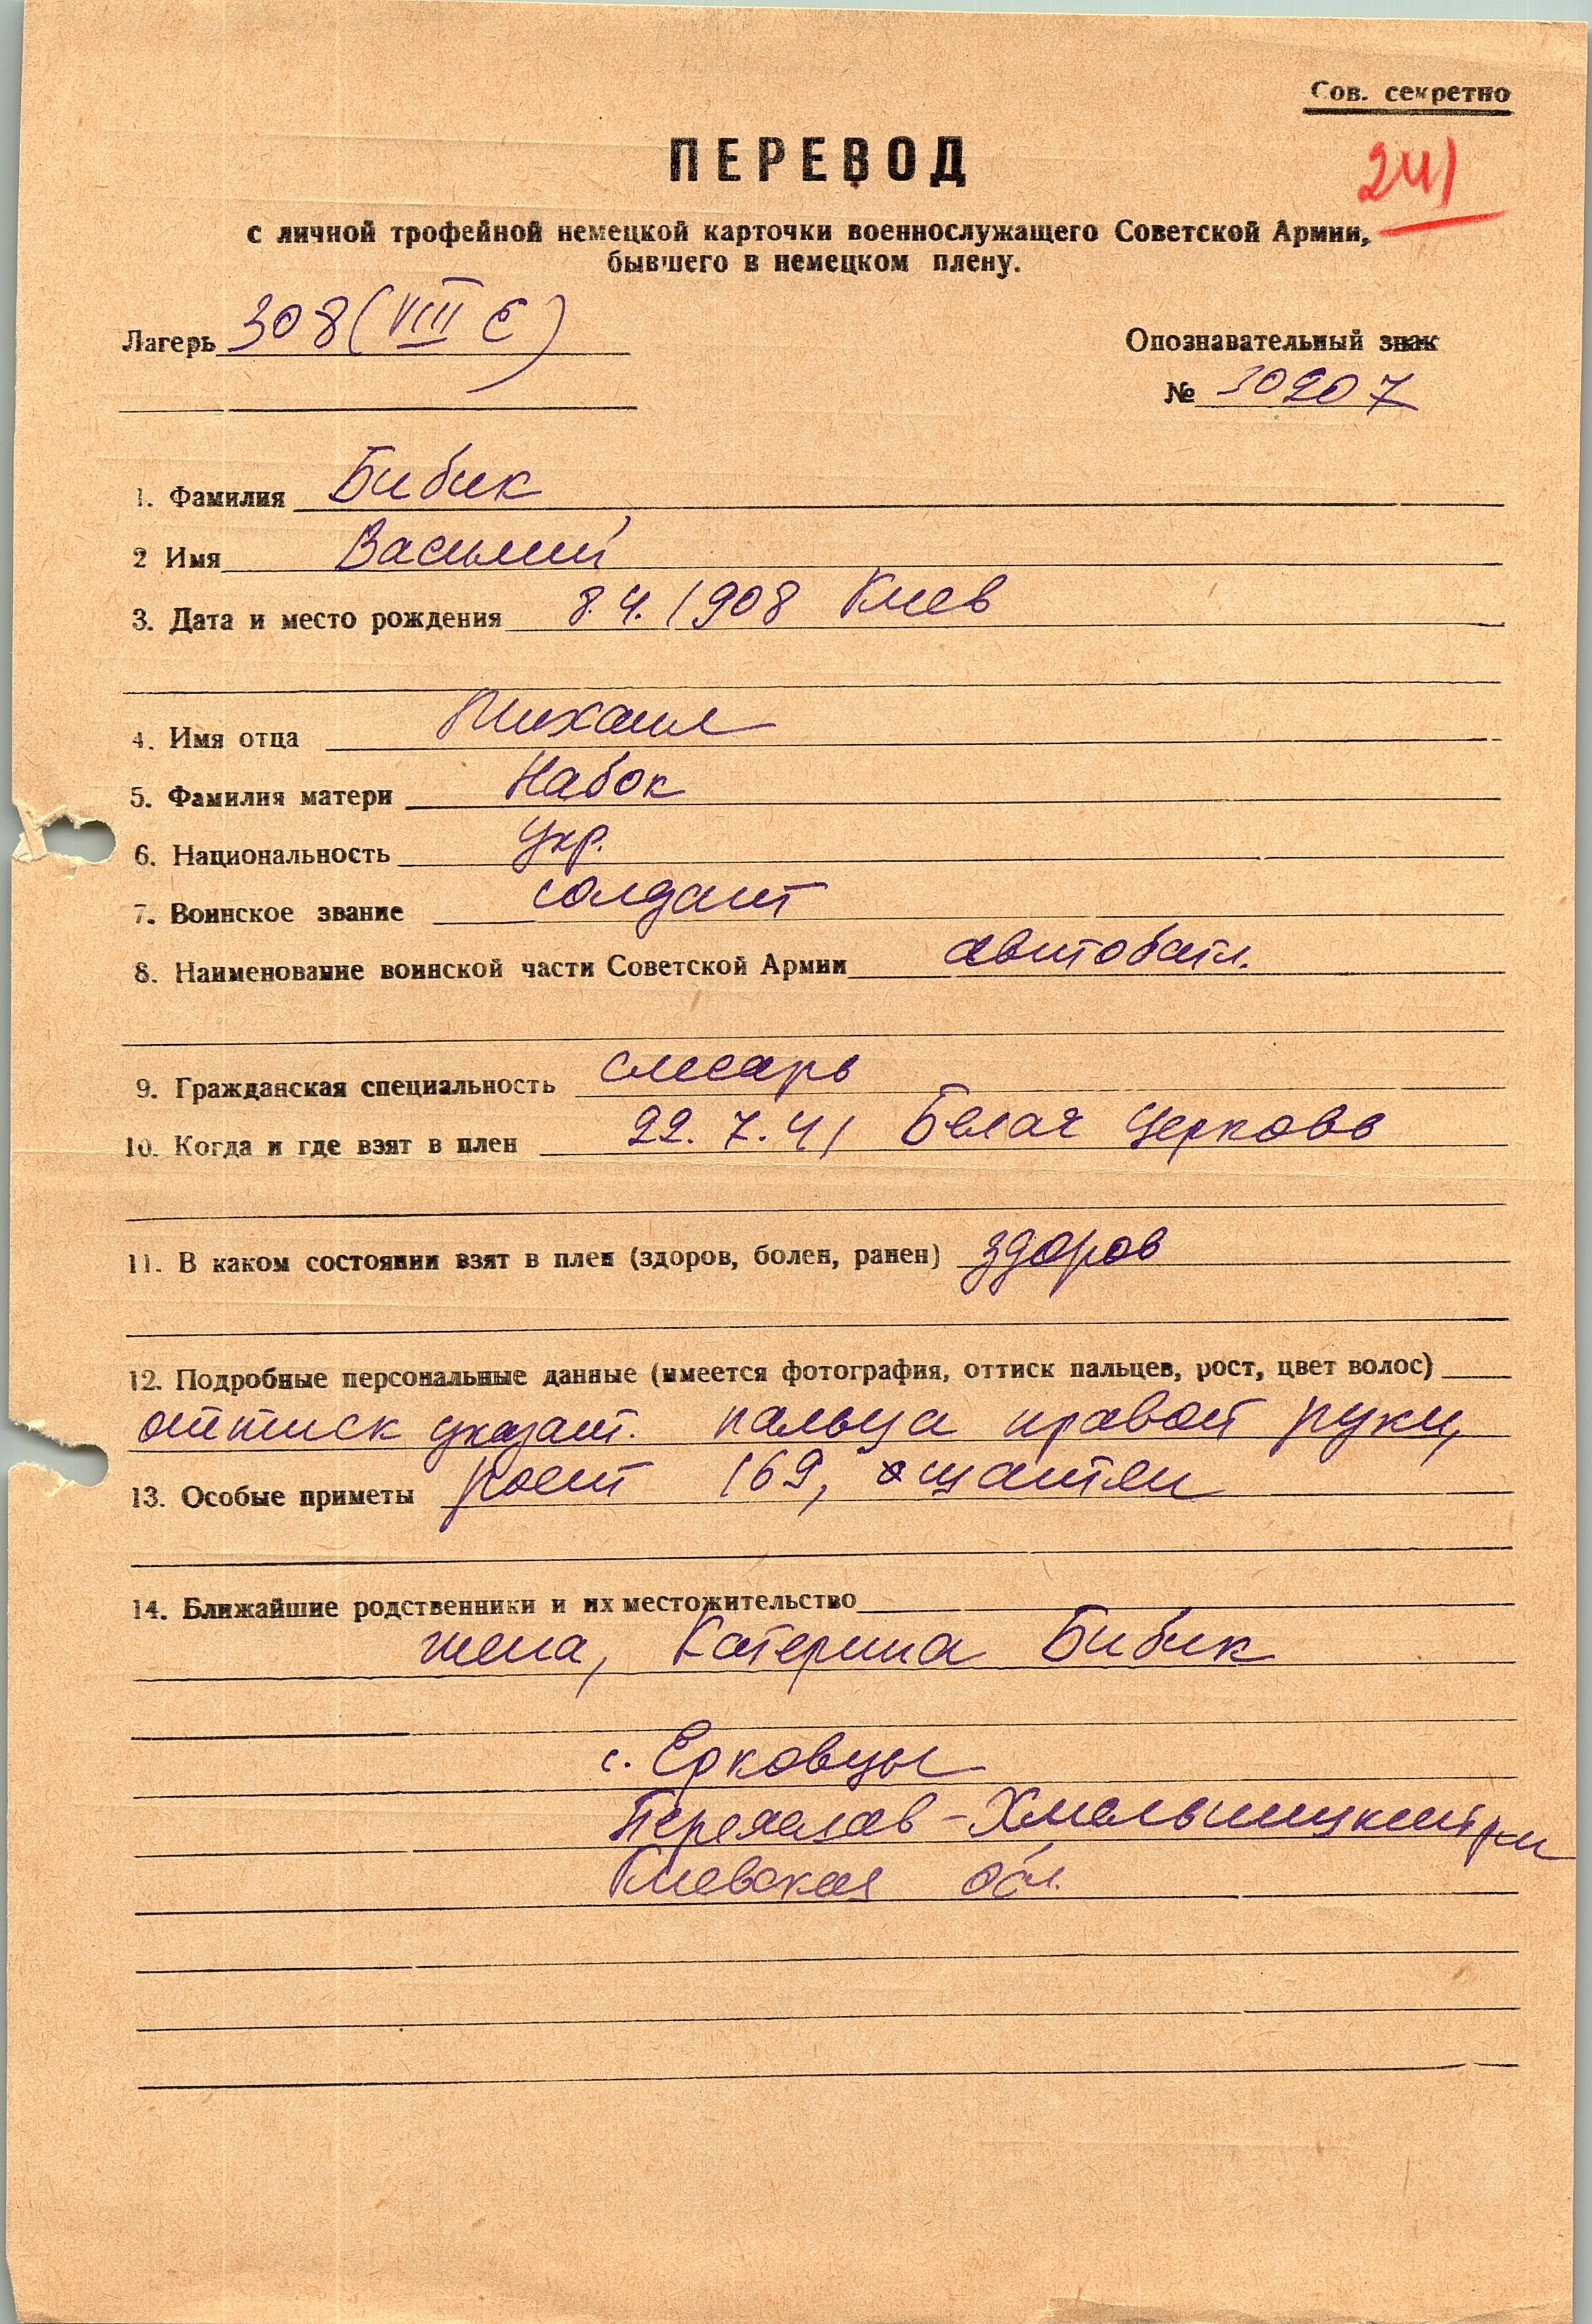 Сов. секретно
ПЕРЕВОД
241
с личной трофейной немецкой карточки военнослужащего Советской Армии,
бывшего в немецком плену.
Лагерь 308 (VIII E)
Опознавательный знак
№ 10207
1. Фамилия Бибик
2 Имя Василий
3. Дата и место рождения 8.4.1908 Киев
4. Имя отца Михаил
5. Фамилия матери Набок
6. Национальность укр.
7. Воинское звание солдат
8. Наименование воинской части Советской Армии автобатл.
9. Гражданская специальность слесарь
10. Когда и где взят в плен 22.7.41 Белая Церковь
11. В каком состоянии взят в плен (здоров, болен, ранен) здоров
12. Подробные персональные данные (имеется фотография, оттиск пальцев, рост, цвет волос)
оттиск указат. пальца правой руки,
13. Особые приметы рост 169, шантен
14. Ближайшие родственники и их местожительство
жена, Катерина Бибик
с. Ерковцы
Переяслав-Хмельницкий р-н
Киевская обл.